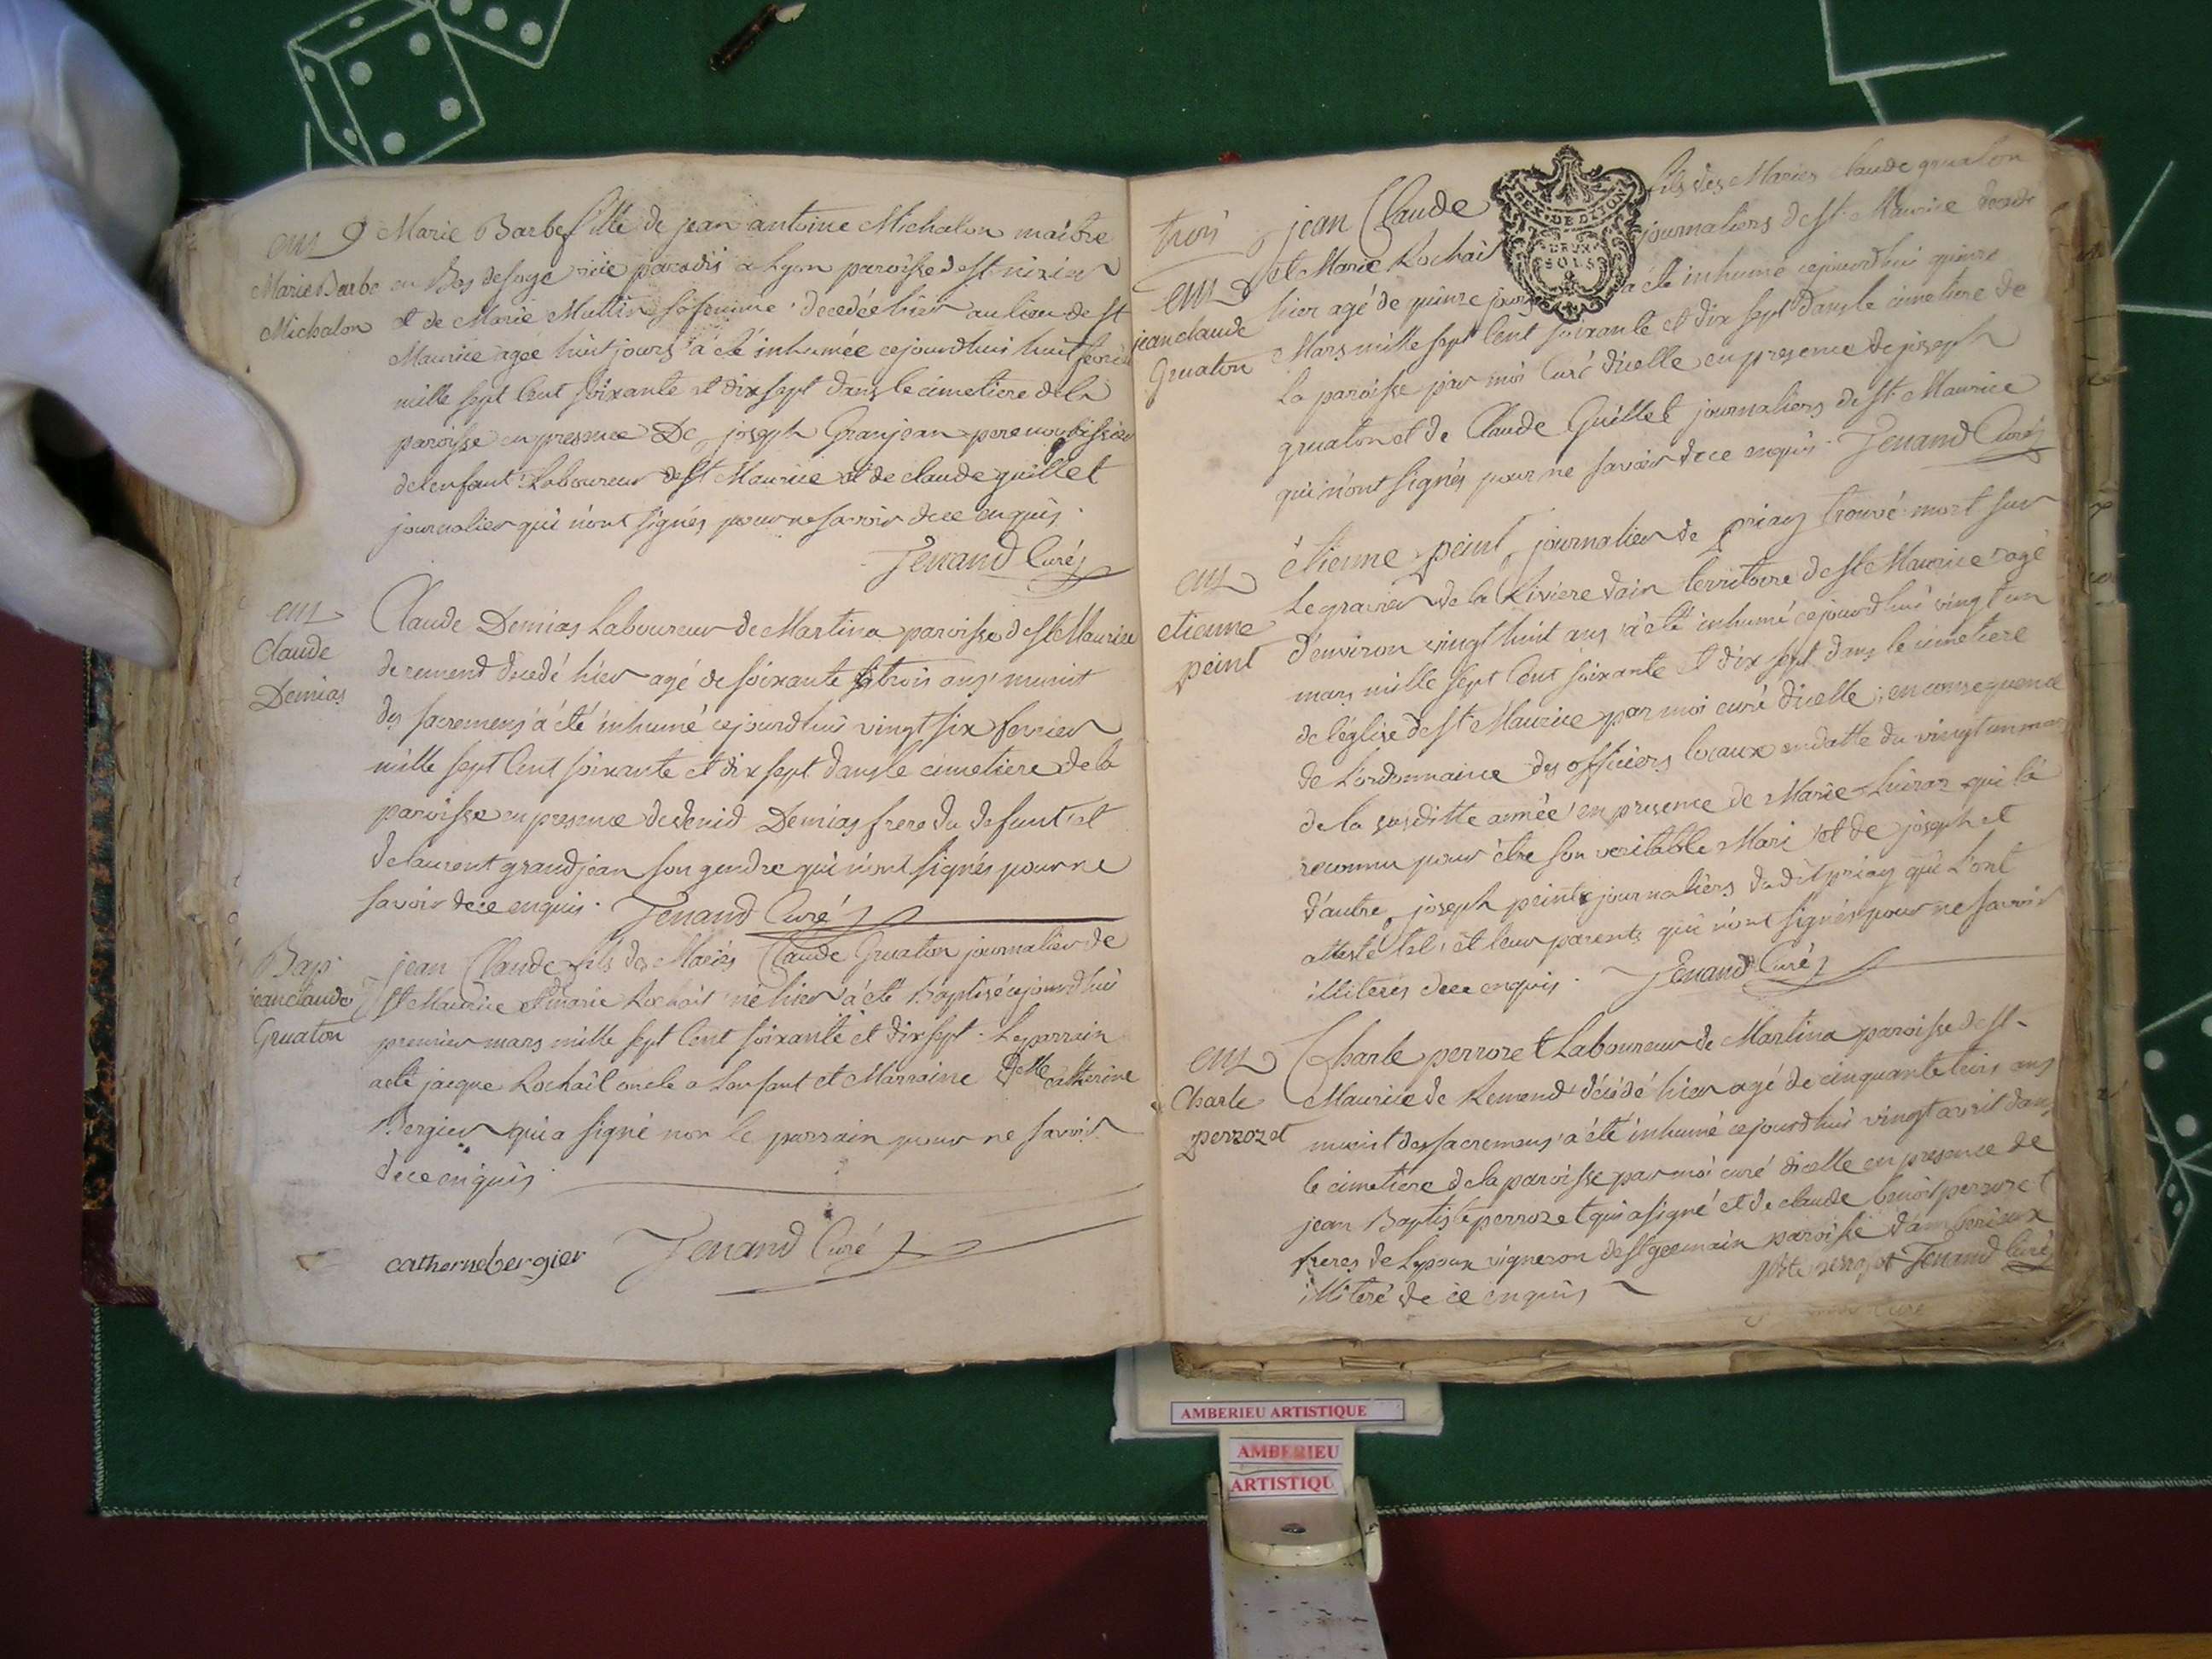 en
Marie Barbe
Michalon
Marie Barbe fille de jean antoine Michalon maitre
en Bas de soye rüe paradis a Lyon paroisse de st nizier
et de Marie Mullin sa femme decedée hier au lieu de st
Maurice agée huit jours a été inhumée cejourdhui huit fevrier
mille sept Cent soixante et dix sept dans le cimetiere de la
paroisse en presence De joseph Granjean pere nourissier
de lenfant Laboureur de St Maurice et de claude guillet
journalier qui n'ont signés pour ne savoir de ce enquis.
Tenand Curé
en
Claude
Demias
Claude Demias Laboureur de Martina paroisse de St Maurice
de remend decedé hier agé de soixante trois ans munit
des sacremens a été inhumé cejourdhui vingt six fevrier
mille sept Cent soixante et dix sept dans le cimetiere de la
paroisse en presence de denid Demias frere du defunt et
de laurent grandjean son gendre qui n'ont signés pour ne
savoir de ce enquis. Tenand Curé
Bap.
jean claude
Gruaton
jean Claude fils des Mariés Claude Gruaton journalier de
St Maurice et marie Rochait né hier a été Baptisé cejourdhui
premier mars mille sept Cent soixante et dix sept. Le parrain
a eté jacque Rochait oncle a Lenfant et Marraine Delle Catherine
Bergier qui a signé non le parrain pour ne savoir
de ce enquis.
catherine bergier Tenand Curé
trois
en
jean claude
Gruaton
jean Claude fils des Mariés Claude gruaton
et Marie Rochait journaliers de St Maurice decedé
hier agé de quinze jours a été inhumé cejourdhui quinze
Mars mille sept Cent soixante et dix sept dans le cimetiere de
La paroisse par moi Curé d'icelle en presence de joseph
gruaton et de Claude Guillet journaliers de St Maurice
qui n'ont signés pour ne savoir de ce enquis. Tenand Curé
GEN. DE DIJON
DEUX
SOLS
en
etienne
peint
étienne peint journalier de priay trouvé mort sur
Le gravier de la Riviere dain territoire de St Maurice agé
d'environ vingt huit ans a été inhumé cejourdhui vingt un
mars mille sept Cent soixante et dix sept dans le cimetiere
de léglise de St Maurice par moi curé d'icelle, en consequence
de Lordonnaince des officiers locaux en datte du vingt un mars
de la susditte année, en presence de Marie Luiraz qui la
reconnu pour être son veritable Mari et de joseph et
d'autre joseph peint journaliers dudit priay qui L'ont
attesté tel, et leur parents qui n'ont signés pour ne savoir
illiterés de ce enquis. Tenand Curé
en
Charle
perrozet
Charle perrozet Laboureur de Martina paroisse de St
Maurice de Remend décédé hier agé de cinquante trois ans
munit des sacremens a été inhumé cejourdhui vingt avril dans
le cimetiere de la paroisse par moi curé dicelle en presence de
jean Baptiste perrozet qui a signé et de claude benoit perrozet
freres de Lepoux vigneron de St germain paroisse dambérieux
illiteré de ce enquis jbte perrozet Tenand Curé
AMBERIEU ARTISTIQUE
AMBERIEU
ARTISTIQU